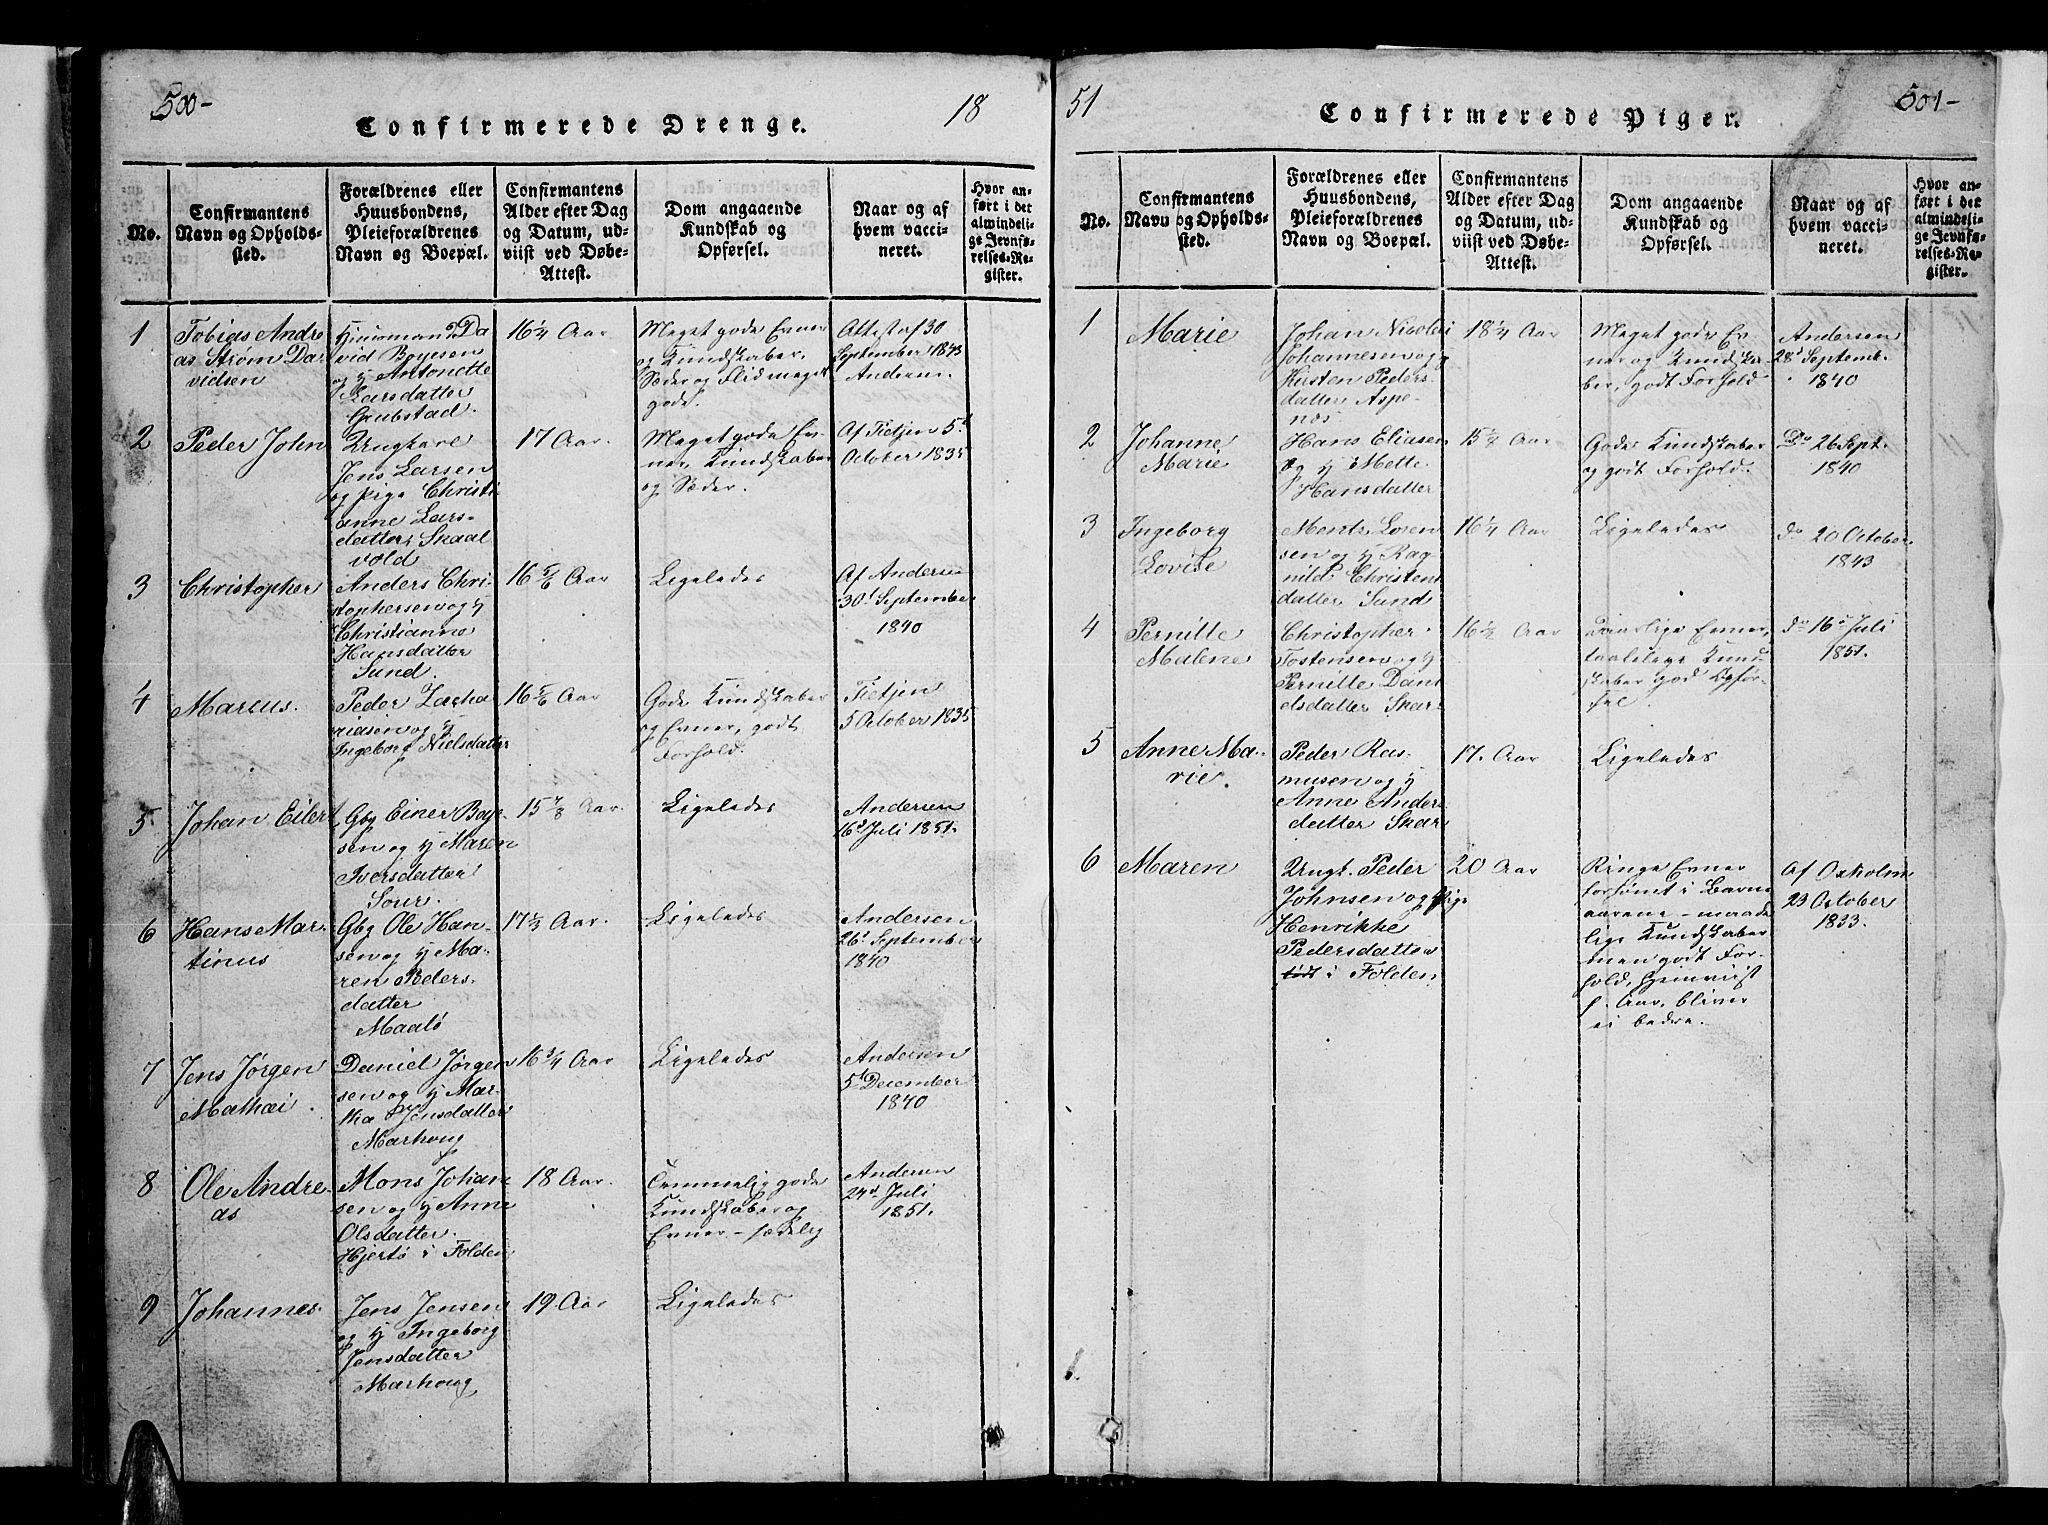 500-
Confirmerede Drenge.
18
No.
Confirmantens
Navn og Opholds-
sted.
Forældrenes eller
Huusbondens,
Pleieforældrenes
Navn og Boepæl.
Confirmantens
Alder efter Dag
og Datum, ud-
viist ved Døbe-
Attest.
Dom angaaende
Kundskab og
Opførsel.
Naar og af
hvem vacci-
neret.
Hvor an-
ført i det
almindeli-
ge Jevnfø-
relses-Re-
gister.
1
Tobias Andre
as Strøm Da
vidsen
Huusmand Da
vid Boyesen
og H Antonette
Larsdatter
Grubstad.
16 1/4 Aar
Meget gode Evner
og Kundskaber,
Sæder og Flid meget
gode.
Attest af 30
September 1843
Andersen.
2
Peder John
Ungkarl
Jens Larsen
og pige Christi
anne Lars-
datter Skaal
vold
17 Aar.
Meget gode Ev-
ner, Kundskaber
og Sæder.
Af Tietjen 5t
October 1835
3
Christopher
Anders Chri-
stophersen og H
Christianna
Hansdatter
Sund.
16 5/6 Aar
Ligeledes
Af Andersen
30t September
1840
4
Marcus.
Peder Zacha
riasen og H
Ingeborg Nielsdatter
16 5/6 Aar
Gode Kundskaber
og Evner, godt
Forhold.
Tietjen
5 October 1835
5
Johan Eilert
Gbg Einer Boye
sen og H Maren
Iversdatter
Sour.
15 7/8 Aar.
Ligeledes
Andersen
16d Juli 1851.
6
Hans Mar
tinus
Gbg Ole Han-
sen og H Ma-
ren Peders-
datter
Maalø
17 1/2 Aar.
Ligeledes
Andersen
26t September
1840
7
Jens Jørgen
Mathæi.
Daniel Jørgen
sen og H Mar-
tha Jensdatter
Marhoug
16 3/4 Aar
Ligeledes
Andersen
5t December
1840
8
Ole Andre-
as
Mons Johan
sen og H Anne
Olsdatter.
Hjertø i Folden
18 Aar.
Temmelig gode
Kundskaber og
Evner - sædelig
Andersen
24d Juli
1851.
9
Johannes.
Jens Jensen
og H Ingeborg
Jensdatter
Marhoug
19 Aar
Ligeledes
51
Confirmerede Piger.
501-
No.
Confirmantens
Navn og Opholds-
sted.
Forældrenes eller
Huusbondens,
Pleieforældrenes
Navn og Boepæl.
Confirmantens
Alder efter Dag
og Datum, ud-
viist ved Døbe-
Attest.
Dom angaaende
Kundskab og
Opførsel.
Naar og af
hvem vacci-
neret.
Hvor an-
ført i det
almindeli-
ge Jevnfø-
relses-Re-
gister.
1
Marie
Johan Nicolai
Johannesen og
Kirsten Peders
datter Aspe-
næs
18 1/4 Aar
Meget gode Ev-
ner og Kundska-
ber, godt Forhold
Andersen
28d Septemb.
1840
2
Johanne
Marie
Hans Eliasen
og H Mette
Hansdatter
15 1/4 Aar
Gode Kundskaber
og godt Forhold.
Do 26 Sept.
1840
3
Ingeborg
Lovise
Mentz Loren
sen og H Rag
nild Christens
datter Sund
16 1/4 Aar
Ligeledes
do 20 October
1843
4
Pernille
Malene
Christopher
Tostensen og H
Pernille Dani
elsdatter Skar
16 1/2 Aar
daarlige Evner,
taalelige Kund-
skaber god Opfør-
sel
do 16d Juli
1851.
5
Anne Ma-
rie.
Peder Ras-
musen og H
Anne Anders
datter Skar
17. Aar
Ligeledes
6
Maren
Ungk. Peder
Johnsen og Pige
Henrikke
Pedersdatter
i Folden
20 Aar
Ringe Evner
forsømt i Barne
aarene - maade
lige Kundskaber
men godt For-
hold,
Aar, bliver
ei bedre.
Af Oxholm
23 October
1833.